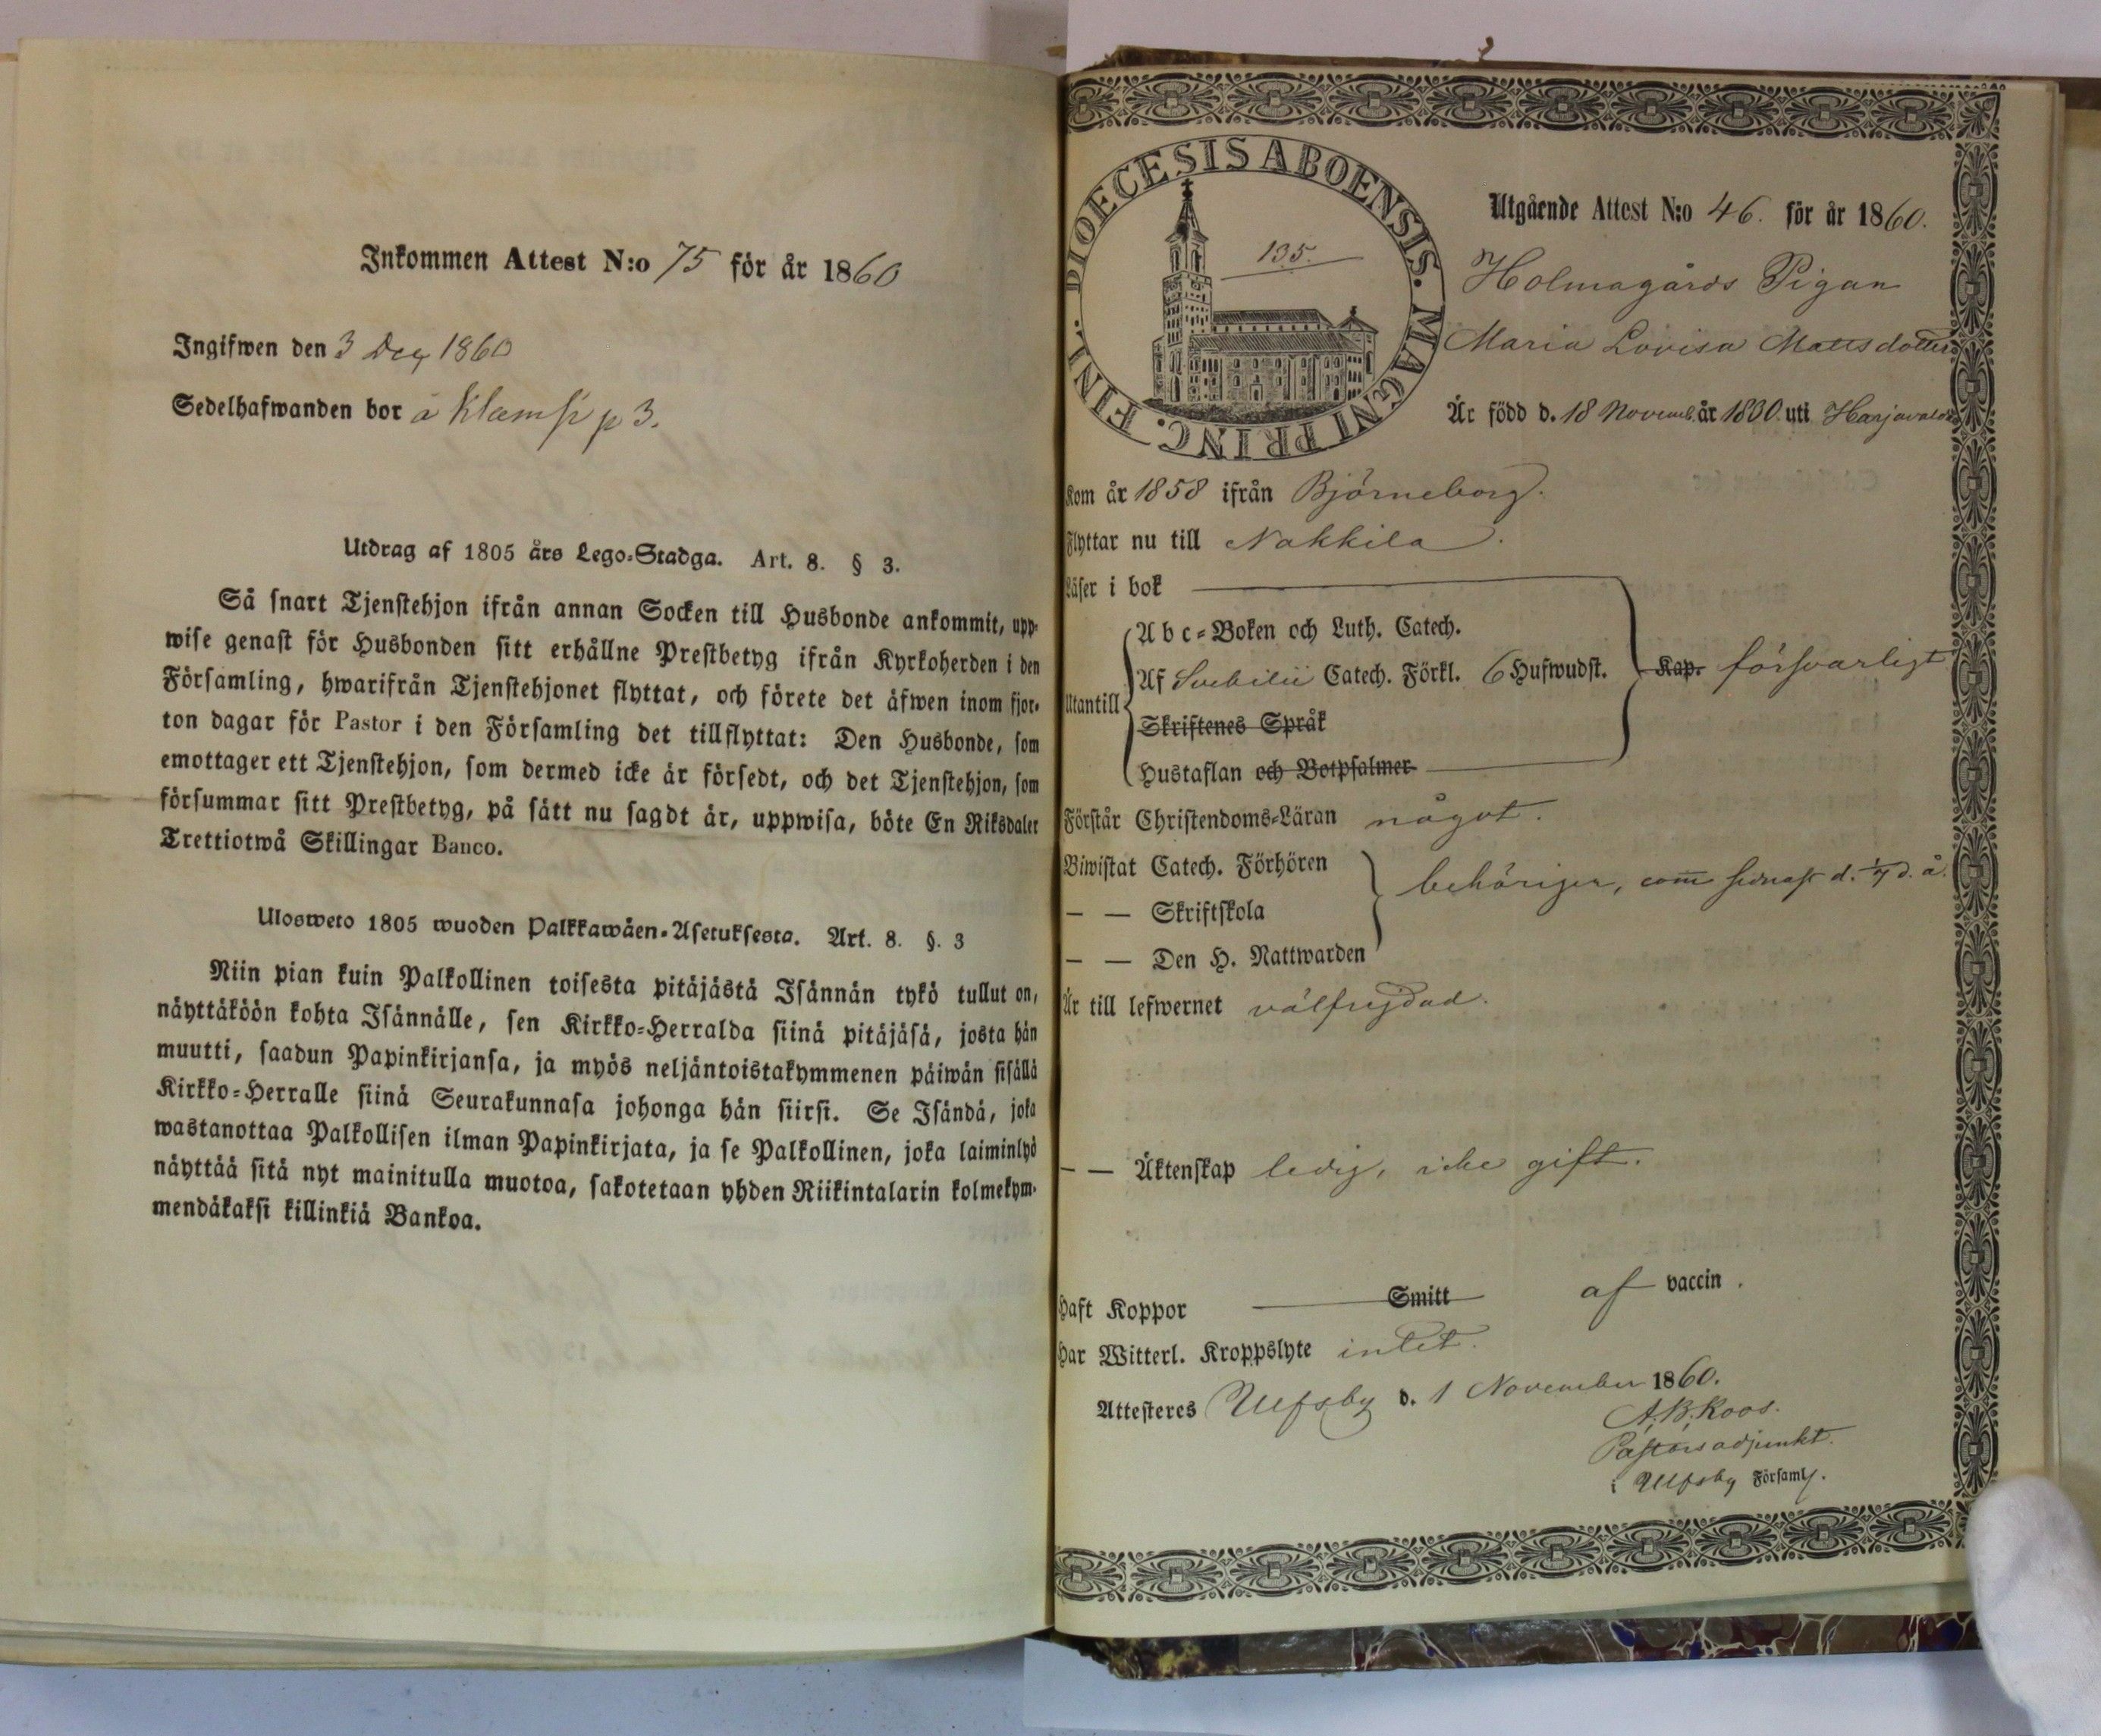 Inkommen Attest N:o 75 för år 1860
Ingifwen den 3 Dec 1860
Sedelhafwanden bor å Klemp p 3.
Utdrag af 1805 års Lego-Stadga. Art. 8. § 3.
Så snart Tjenstehjon ifrån annan Socken till Husbonde ankommit, upp-
wise genast för Husbonden sitt erhållne Prestbetyg ifrån Kyrkoherden i den
Församling, hwarifrån Tjenstehjonet flyttat, och förete det äfwen inom fjor-
ton dagar för Pastor i den Församling det tillflyttat: Den Husbonde, som
emottager ett Tjenstehjon, som dermed icke är försedt, och det Tjenstehjon, som
försummar sitt Prestbetyg, på sätt nu sagdt är, uppwisa, böte En Riksdaler
Trettiotwå Skillingar Banco.
Ulosweto 1805 wuoden Palkkawäen-Asetuksesta. Art. 8. §. 3
Niin pian kuin Palkollinen toisesta pitäjästä Isännän tykö tullut on,
näyttäköön kohta Isännälle, sen Kirkko-Herralda siinä pitäjäsä, josta hän
muutti, saadun Papinkirjansa, ja myös neljäntoistakymmenen päiwän sisällä
Kirkko-Herralle siinä Seurakunnasa johonga hän siirsi. Se Isändä, joka
wastanottaa Palkollisen ilman Papinkirjata, ja se Palkollinen, joka laiminlyö
näyttää sitä nyt mainitulla muotoa, sakotetaan yhden Riikintalarin kolmekym-
mendäkaksi killinkiä Bankoa.
DIOECESIS ABOENSIS. MAGNI PRINC. FINL.
135.
Utgående Attest N:o 46. för år 1860.
Holmagårds Pigan
Maria Lovisa Mattsdotter
Är född d. 18 Novemb. år 1830. uti Harjavalda
Kom år 1858 ifrån Björneborg.
Flyttar nu till Nakkila.
Läser i bok
Utantill
A b c-Boken och Luth. Catech.
Af Svebilii Catech. Förkl. 6 Hufwudst.
Kap. försvarligt
Skriftenes Språk
Hustaflan och Botpsalmer
Förstår Christendoms-Läran något.
Biwistat Catech. Förhören
— — Skriftskola
— — Den H. Nattwarden
behörigen, com sednast d. 1/7 d. å.
Är till lefwernet välfrejdad.
— — Äktenskap ledig, icke gift.
Haft Koppor Smitt af vaccin.
Har Witterl. Kroppslyte intet.
Attesteres Ulfsby d. 1 November 1860.
A. B. Roos.
Pastorsadjunkt.
i Ulfsby Församl.